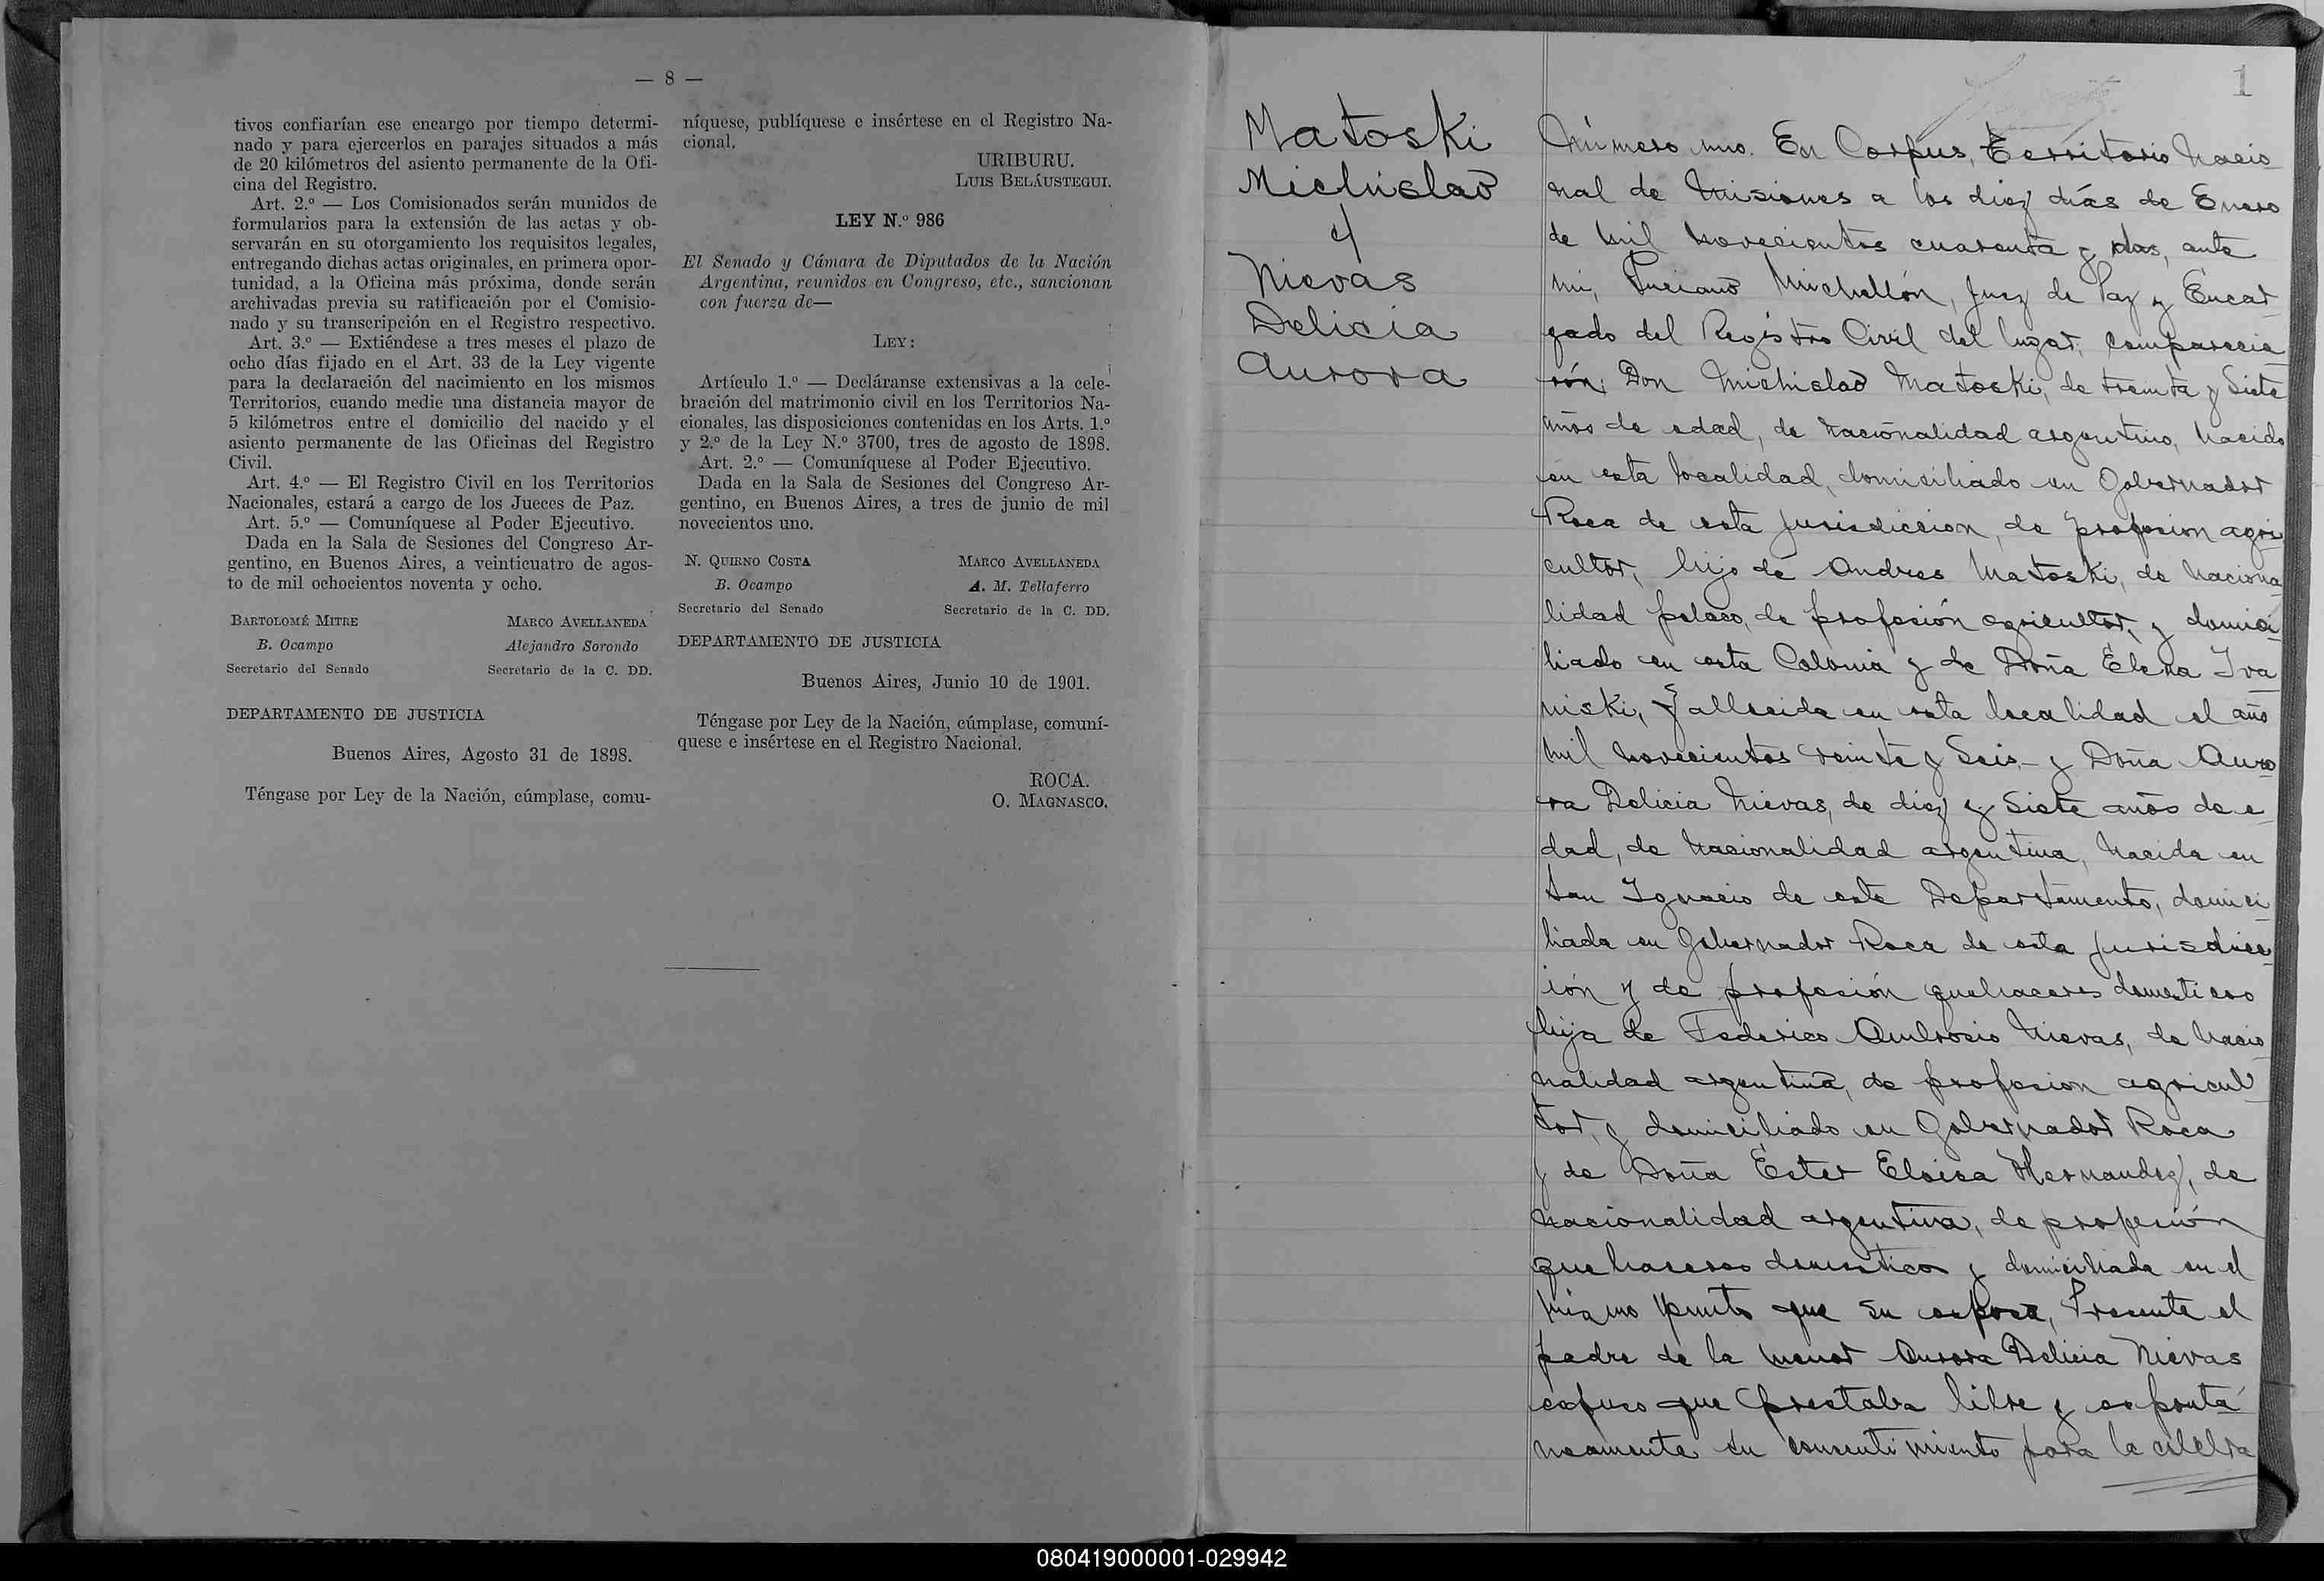 — 8 —
tivos confiarían ese encargo por tiempo determi-
nado y para ejercerlos en parajes situados a más
de 20 kilómetros del asiento permanente de la Ofi-
cina del Registro.
Art. 2.º — Los Comisionados serán munidos de
formularios para la extensión de las actas y ob-
servarán en su otorgamiento los requisitos legales,
entregando dichas actas originales, en primera opor-
tunidad, a la Oficina más próxima, donde serán
archivadas previa su ratificación por el Comisio-
nado y su transcripción en el Registro respectivo.
Art. 3.º — Extiéndese a tres meses el plazo de
ocho días fijado en el Art. 33 de la Ley vigente
para la declaración del nacimiento en los mismos
Territorios, cuando medie una distancia mayor de
5 kilómetros entre el domicilio del nacido y el
asiento permanente de las Oficinas del Registro
Civil.
Art. 4.º — El Registro Civil en los Territorios
Nacionales, estará a cargo de los Jueces de Paz.
Art. 5.º — Comuníquese al Poder Ejecutivo.
Dada en la Sala de Sesiones del Congreso Ar-
gentino, en Buenos Aires, a veinticuatro de agos-
to de mil ochocientos noventa y ocho.
BARTOLOMÉ MITRE MARCO AVELLANEDA
B. Ocampo Alejandro Sorondo
Secretario del Senado Secretario de la C. DD.
DEPARTAMENTO DE JUSTICIA
Buenos Aires, Agosto 31 de 1898.
Téngase por Ley de la Nación, cúmplase, comu-
níquese, publíquese e insértese en el Registro Na-
cional.
URIBURU.
LUIS BELÁUSTEGUI.
LEY N.º 986
El Senado y Cámara de Diputados de la Nación
Argentina, reunidos en Congreso, etc., sancionan
con fuerza de—
LEY:
Artículo 1.º — Decláranse extensivas a la cele-
bración del matrimonio civil en los Territorios Na-
cionales, las disposiciones contenidas en los Arts. 1.º
y 2.º de la Ley N.º 3700, tres de agosto de 1898.
Art. 2.º — Comuníquese al Poder Ejecutivo.
Dada en la Sala de Sesiones del Congreso Ar-
gentino, en Buenos Aires, a tres de junio de mil
novecientos uno.
N. QUIRNO COSTA MARCO AVELLANEDA
B. Ocampo A. M. Tellaferro
Secretario del Senado Secretario de la C. DD.
DEPARTAMENTO DE JUSTICIA
Buenos Aires, Junio 10 de 1901.
Téngase por Ley de la Nación, cúmplase, comuní-
quese e insértese en el Registro Nacional.
ROCA.
O. MAGNASCO.
1
Matoski
Michislao
y
Nievas
Delicia
Aurora
Número uno. En Corpus, Territorio Nacio-
nal de Misiones a los diez días de Enero
de mil novecientos cuarenta y dos, ante
mi, Luciano Michellón, Juez de Paz y Encar-
gado del Registro Civil del lugar, comparecie-
rón: Don Michislao Matoski, de treinta y Siete
años de edad, de nacionalidad argentino, nacido
en esta localidad, domiciliado en Gobernador
Roca de esta jurisdiccion, de profesion agri-
cultor, hijo de Andres Matoski, de naciona-
lidad polaco, de profesión agricultor, y domici-
liado en esta Colonia y de Doña Elena Iva-
niski, fallecida en esta localidad el año
mil novecientos veinte y Seis.- y Doña Auro-
ra Delicia Nievas, de diez y Siete años de e-
dad, de nacionalidad argentina, nacida en
San Ignacio de este Departamento, domici-
liada en Gobernador Roca de esta jurisdicc-
ión y de profesión quehaceres domesticos
hija de Federico Ambrosio Nievas, de nacio-
nalidad argentina, de profesion agricul-
tor, y domiciliado en Gobernador Roca
y de Doña Ester Eloisa Hernandez, de
nacionalidad argentina, de profesión
quehaceres domesticos y domiciliada en el
mismo punto que su esposo, Presente el
padre de la menor Aurora Delicia Nievas
expuso que prestaba libre y esponta-
neamente su consentimiento para la celebra
080419000001-029942